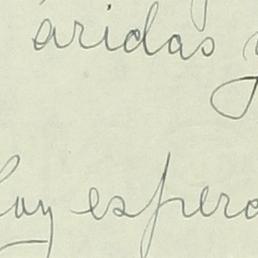 áridas y
hoy espero